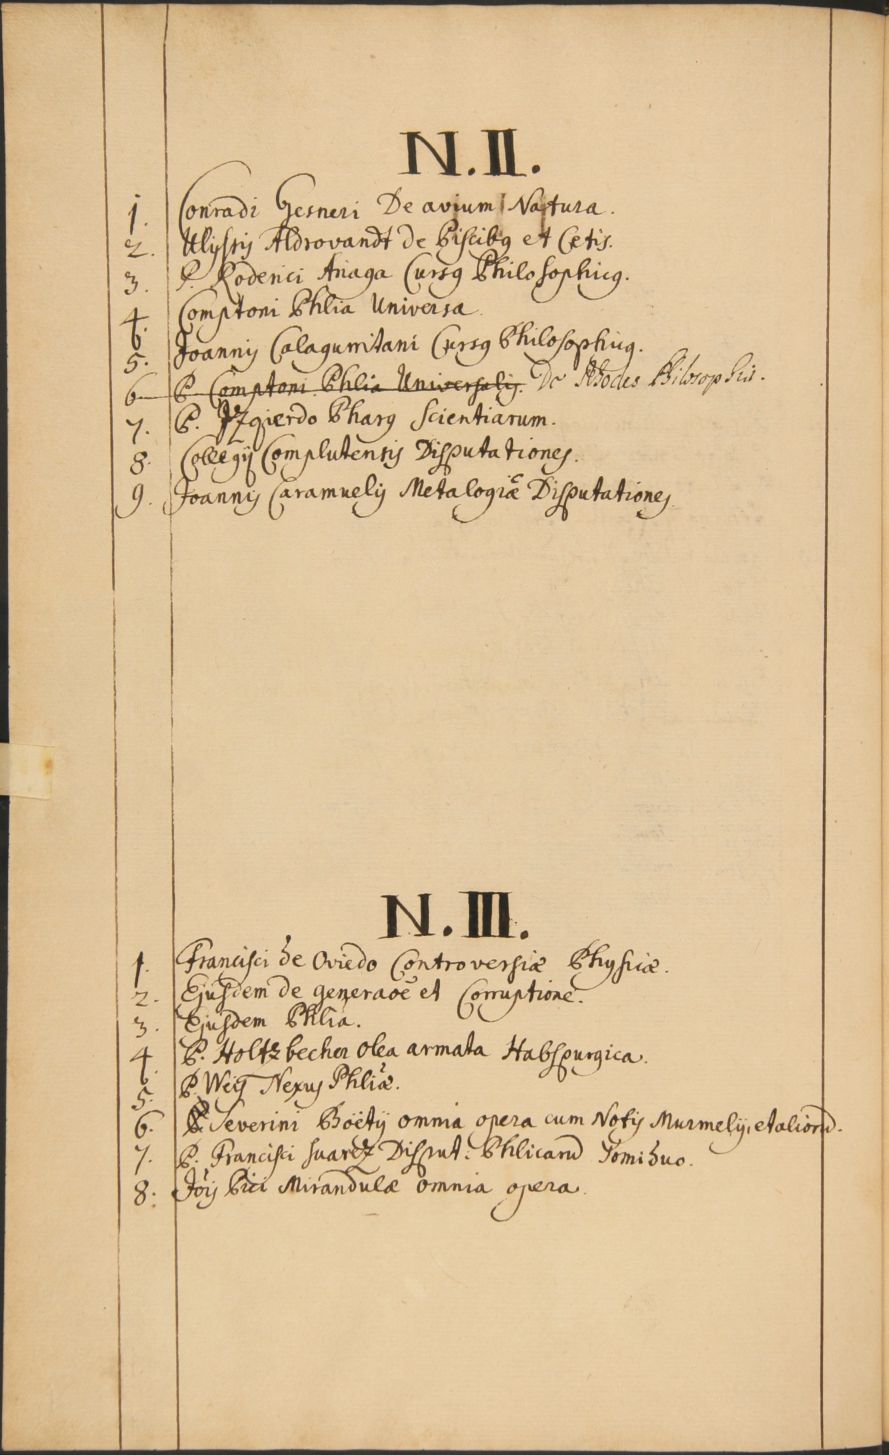 N. II.
1. Conradi Gesneri De avium Natura.
2. Ulyssis Aldrovandi de Piscibq et Cetis.
3. P. Roderici Ariaga Cursq Philosophicq.
4. Comptoni Phlia Universa
5. Joannis Calagurritani Cursq Philosophicq.
6. P. Comptoni Phlia Universalis. De Rhodes Philosophia.
7. P. Izqierdo Pharq Scientiarum.
8. Collegij Complutensis Disputationes.
9. Joannis Caramuelis Metalogicæ Disputationes
N. III.
1. Francisci de Oviedo Controversiæ Physicæ.
2. Ejusdem de generaoē et Corruptione.
3. Ejusdem Phlia.
4. P. Holtzbecher Olea armata Habspurgica.
5. P. Nexus Phliæ.
6. Severini Boëtij omnia opera cum Notis Murmelij, et aliorū.
7. P. Francisci Suarez Disput: Phlicarū Tomi duo.
8. Jōis Pici Mirandulæ omnia opera.